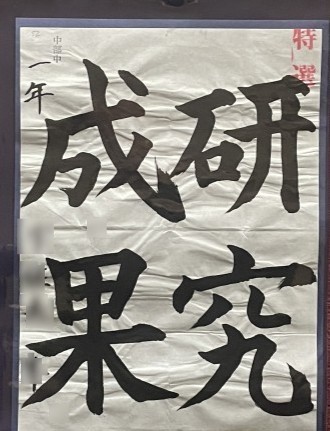 特選
研究
成果
中部中
一年